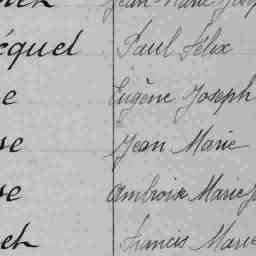 Jean-Marie
équel Paul Félix
e Eugène Joseph
se Jean Marie
se Ambroise Marie
et Francis Marie